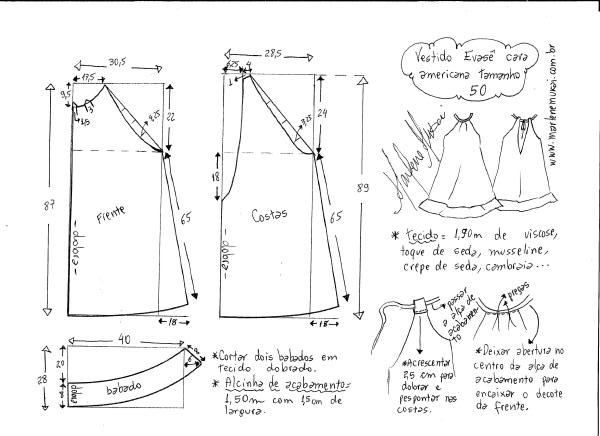 30,5
17,5
9,5
1,5
3
2,25
22
87
Frente
dobra
65
18
28,5
4
1
24
18
89
Costas
dobra
65
18
Vestido Evasê cava
americana tamanho
50
www.marlenemukai.com.br
Marlene Mukai
* tecido = 1,90m de viscose,
toque de seda, musseline,
crepe de seda, cambraia...
40
20
28
8
dobra
babado
*Cortar dois babados em
tecido dobrado.
* Alcinha de acabamento=
1,50m com 1,5cm de
largura.
passar
a alça
de
acabamento
*Acrescentar
2,5 cm para
dobrar e
pespontar nas
costas.
pregas
*Deixar abertura no
centro da alça de
acabamento para
encaixar o decote
da frente.